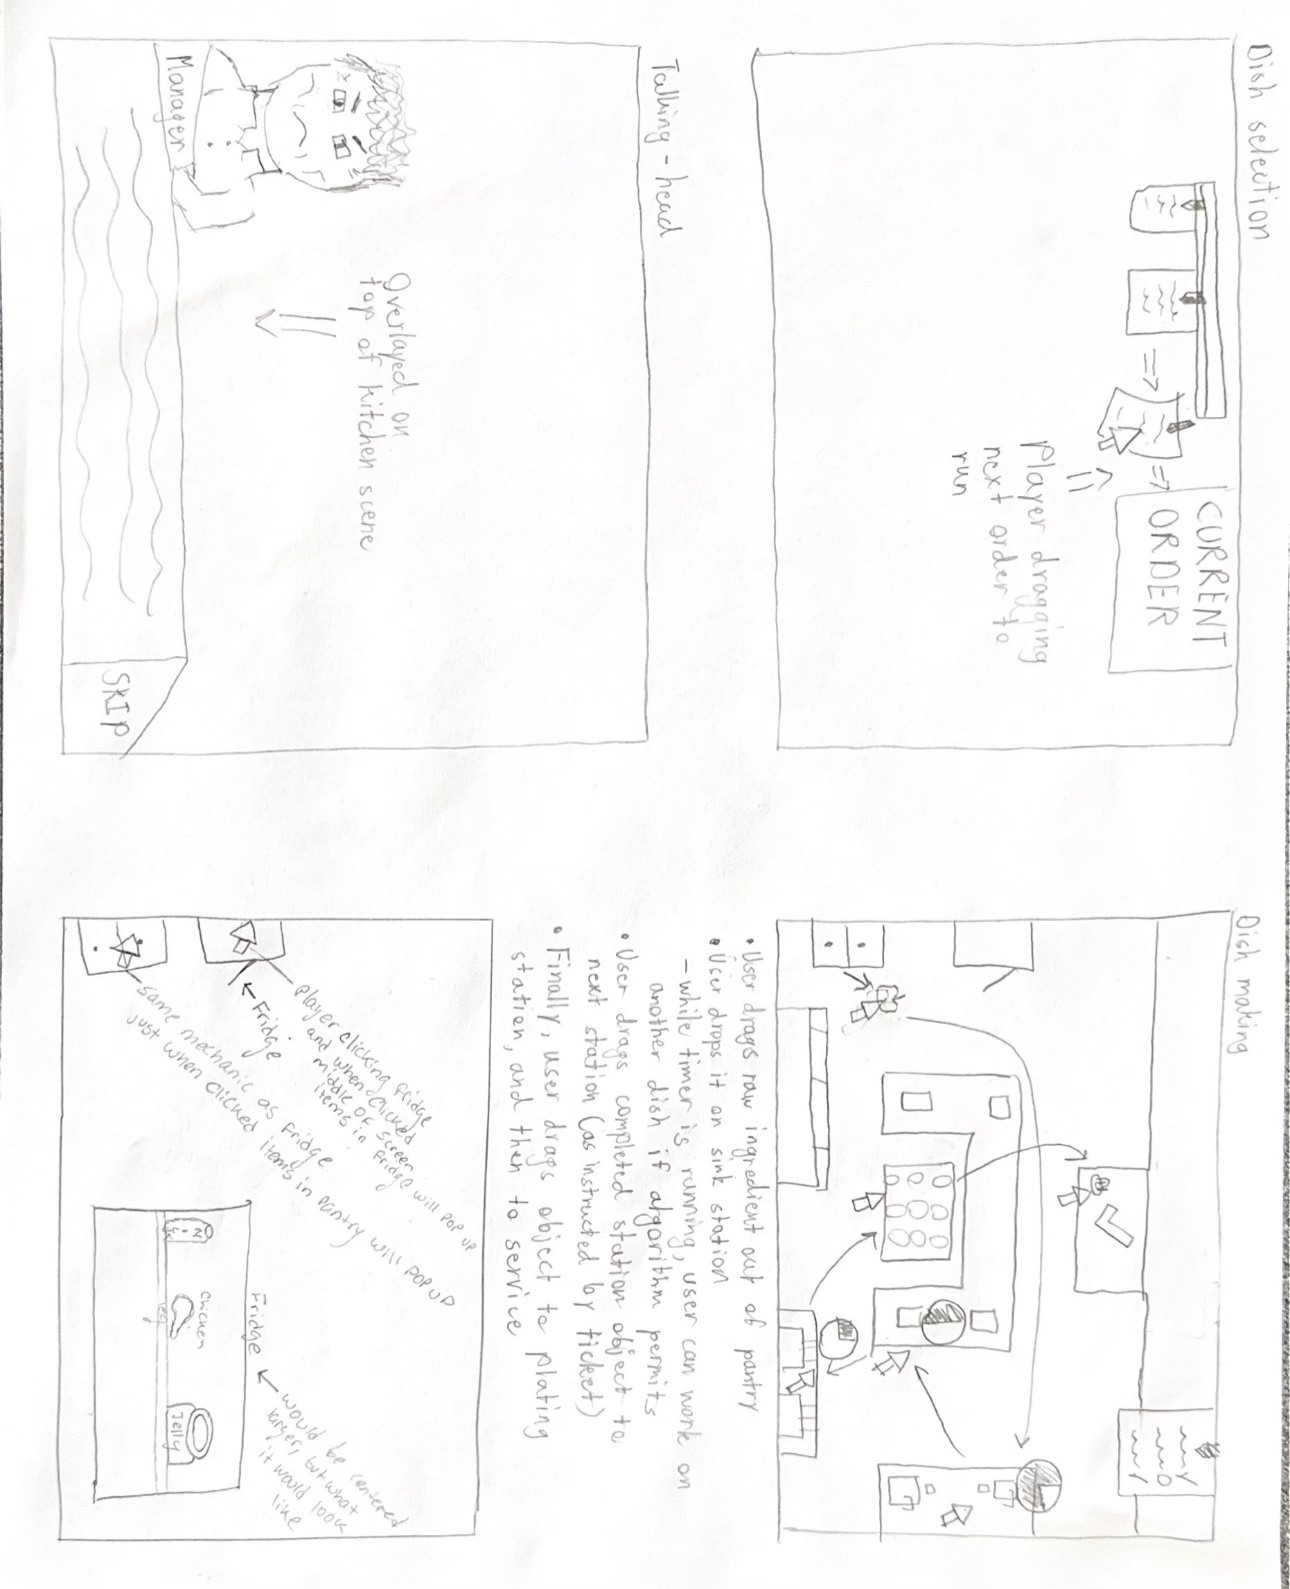 Dish selection
CURRENT
ORDER
Player dragging
next order to
run
Talking - head
Overlayed on
top of kitchen scene
Manager
SKIP
Dish making
• User drags raw ingredient out of pantry
• User drops it on sink station
- while timer is running, user can work on
another dish if algorithm permits
• User drags completed station object to
next station (as instructed by ticket)
• Finally, user drags object to plating
station, and then to service
player clicking fridge
and when clicked
middle of screen
items in fridge will pop up
Fridge
same mechanic as fridge
just when clicked items in pantry will pop up
Fridge
Chicken
leg
Jelly
would be centered
larger, but what
it would look
like